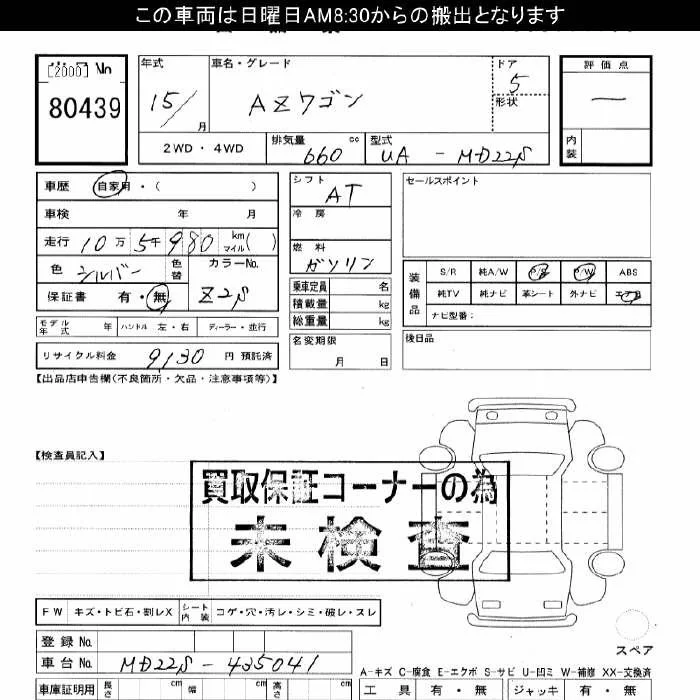 この車両は日曜日AM8:30からの搬出となります
[2000] No
80439
年式 15/ 月
車名・グレード
AZワゴン
ドア 5
形状
評価点
—
内装
2WD・4WD
排気量 660 cc
型式 UA - MD22S
車歴 自家用・( )
車検 年 月
走行 10万5千980 km マイル( )
色 シルバー 色替
カラーNo. Z2S
保証書 有・無
シフト AT
冷房
燃料 ガソリン
乗車定員 名
積載量 kg
総重量 kg
セールスポイント
装備品
S/R 純A/W P/S P/W ABS
純TV 純ナビ 革シート 外ナビ エアB
ナビ型番:
モデル年式 年 ハンドル 左・右 ディーラー・並行
名変期限
月 日
後日品
リサイクル料金 9130 円 預託済
【出品店申告欄(不良箇所・欠品・注意事項等)】
【検査員記入】
買取保証コーナーの為
未検査
FW キズ・トビ石・割レX シート内装 コゲ・穴・汚レ・シミ・破レ・スレ
スペア
登録No.
車台No. MD22S-435041
A-キズ C-腐食 E-エクボ S-サビ U-凹ミ W-補修 XX-交換済
車庫証明用 長さ cm 幅 cm 高さ cm
工具 有・無 ジャッキ 有・無